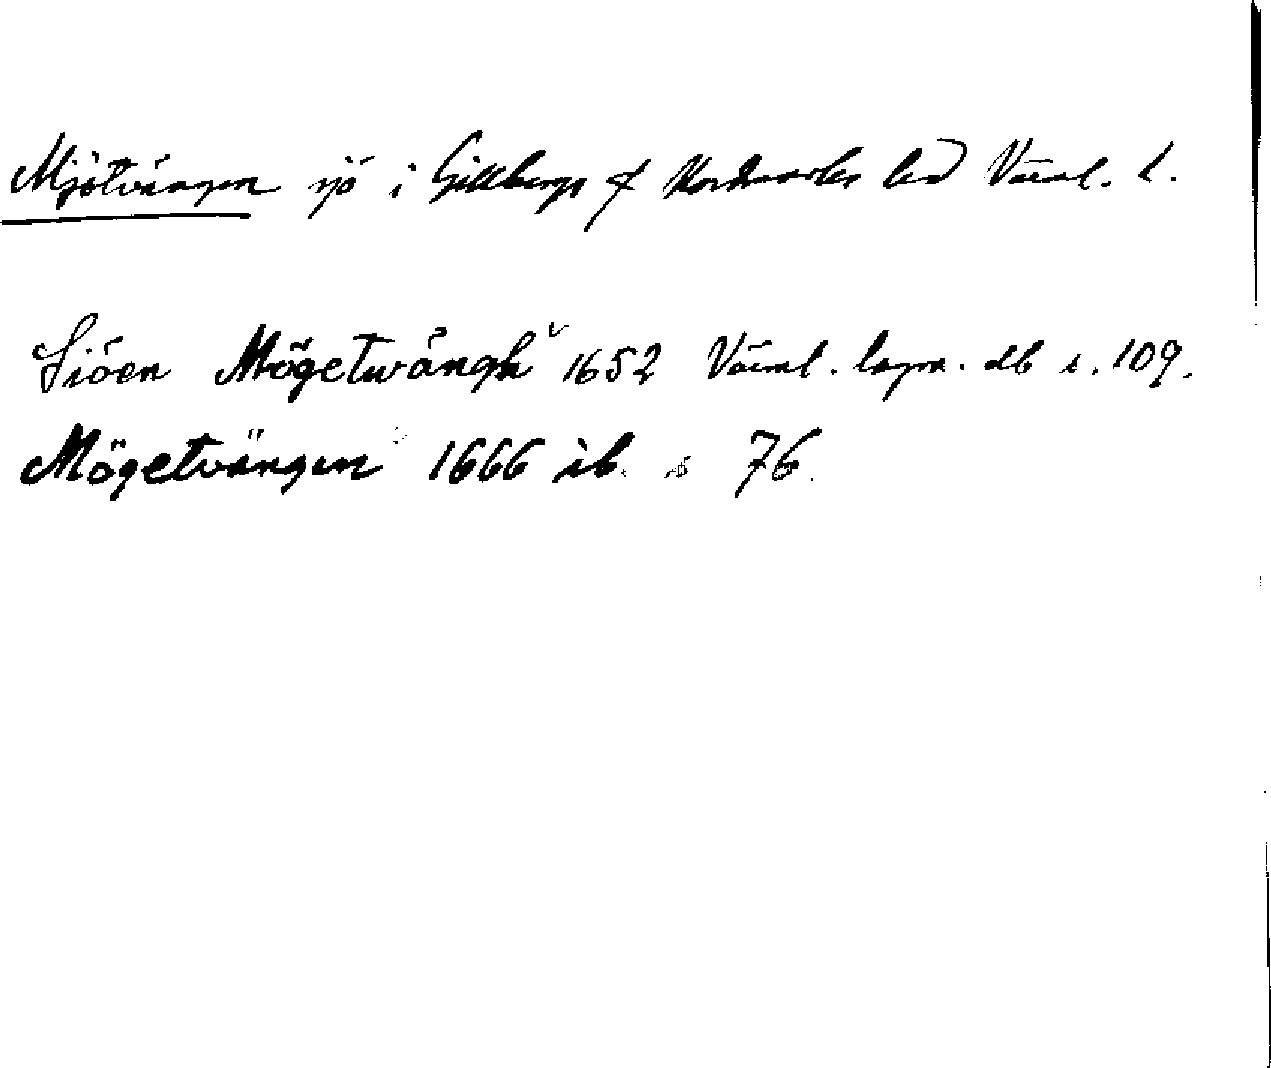 Mjötvängen sjö i Gillbergs & Nordmarks hd Värml. l.
Siöen Mögetwångh 1652 Värml. lagm. db s. 109.
Mögetvängen 1666 ib. s 76.